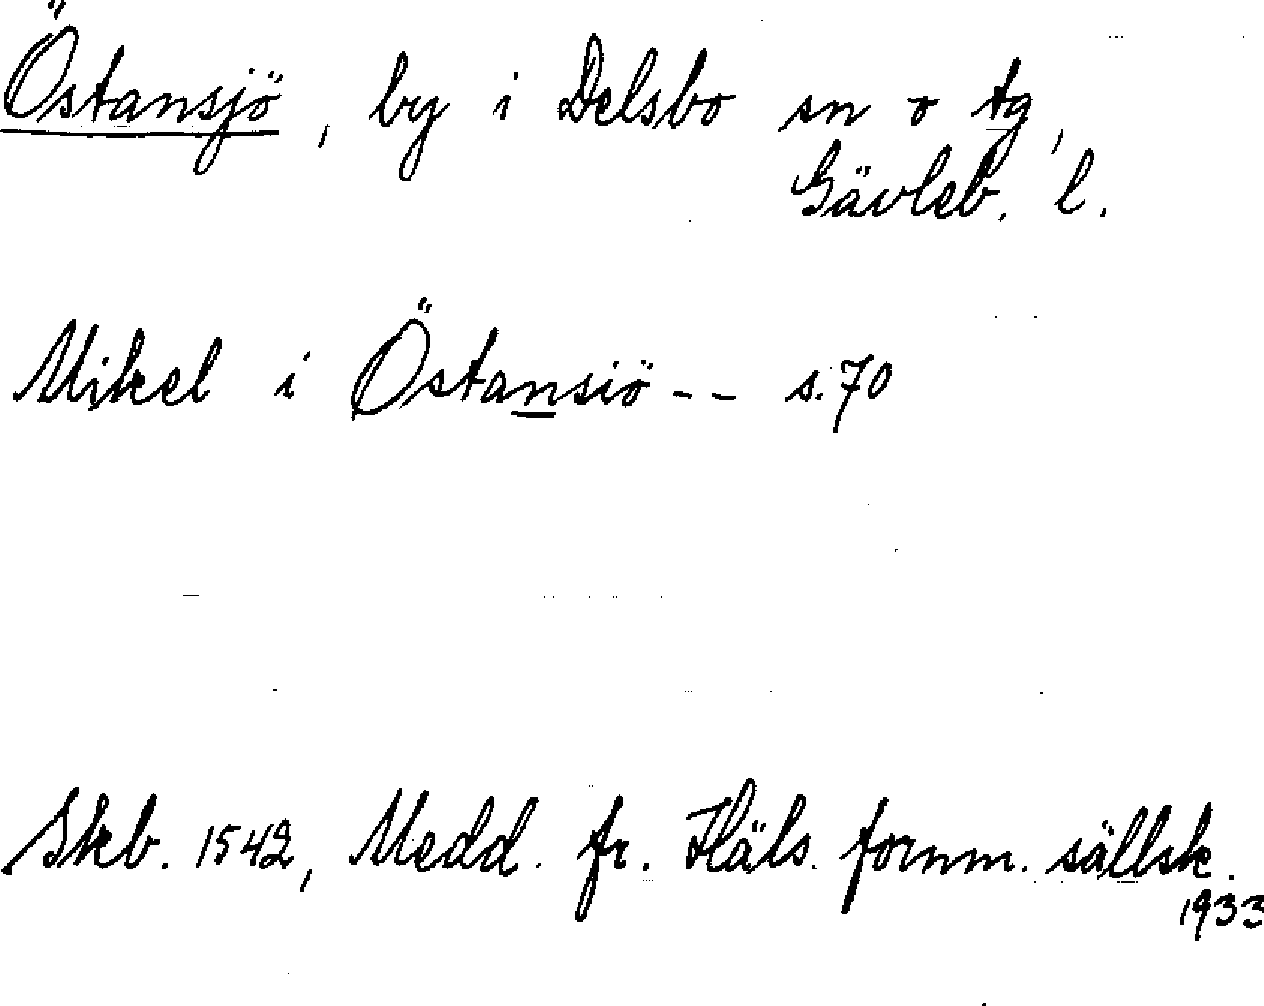 Östansjö, by i Delsbo sn o tg,
Gävleb. l.
Mikel i Östansiö -- s. 70
Skb. 1542, Medd. fr. Häls. fornm. sällsk.
1933